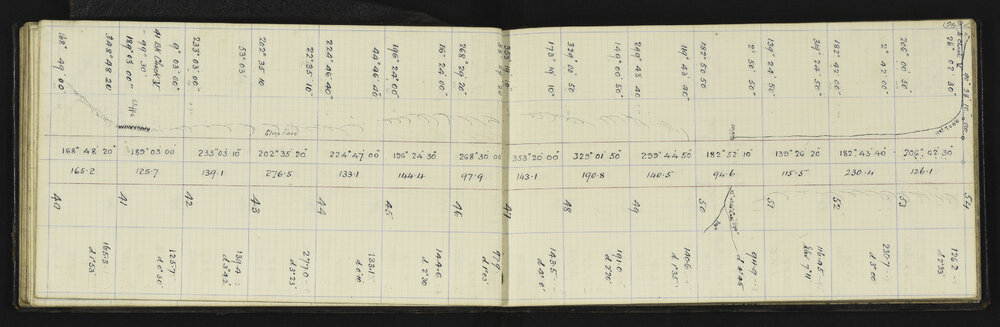 168° 49' 00"
348° 48' 20"
189° 03' 00"
99° 30'
41 BK Check V
9° 03' 00"
233° 03' 00"
53° 03'
202° 35' 10
22° 35' 10"
224° 46' 40"
44° 46' 40
196° 24' 00"
16° 24' 00"
268° 29' 20"
173° 19' 10"
329° 00' 50
149° 00' 50
299° 43' 40"
119° 43' 40
182° 50' 50
2° 50' 50"
139° 24' 50"
319° 24' 50"
182° 42' 00"
2° 42' 00"
206° 00' 50
26° 02' 30"
Cliffs
Steep Land
168° 48' 20"
189° 03 00
233° 03' 10
202° 35' 20
224° 47 00
196° 24' 30
268° 30 00
353° 20 00
329° 01' 50
299° 44' 50
182° 52' 10
139° 26' 20
182° 43' 40
206° 02' 30
165.2
125.7
139.1
276.5
133.1
144.4
97.9
143.1
190.8
140.5
94.6
115.5
230.4
126.1
40
41
42
43
44
45
46
47
48
49
50
51
52
53
54
165.3
d 1°53'
125.7
d 0°30'
139.4
d 3°42'
277.0
d 3°23'
133.1
d 0°10'
144.6
d 2°30
97.9
d 1°03'
143.5
d 4°0'
191.0
d 2°20'
140.6
d 1°35'
94.9
d 4°45
116.45
230.7
d 3°00'
126.2
d 2°33'